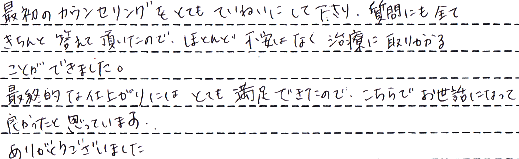 最初のカウンセリングをとてもていねいにして下さり、質問にも全て
きちんと答えて頂いたので、ほとんど不安はなく治療に取りかかる
ことができました。
最終的な仕上がりにはとても満足できたので、こちらでお世話になって
良かったと思っています。
ありがとうございました